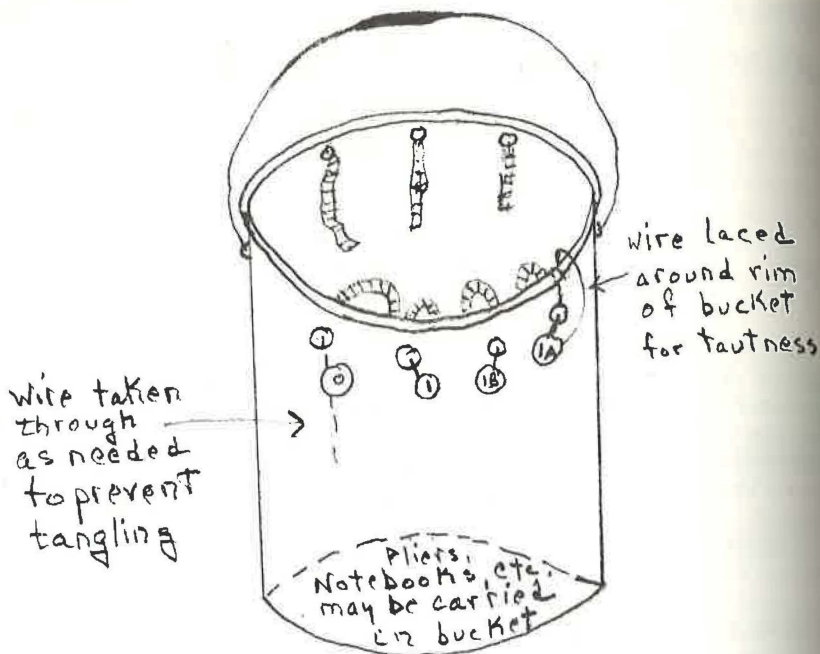 wire laced
around rim
of bucket
for tautness
O
1
1B
1A
wire taken
through
as needed
to prevent
tangling
Pliers,
Notebooks, etc.
may be carried
in bucket